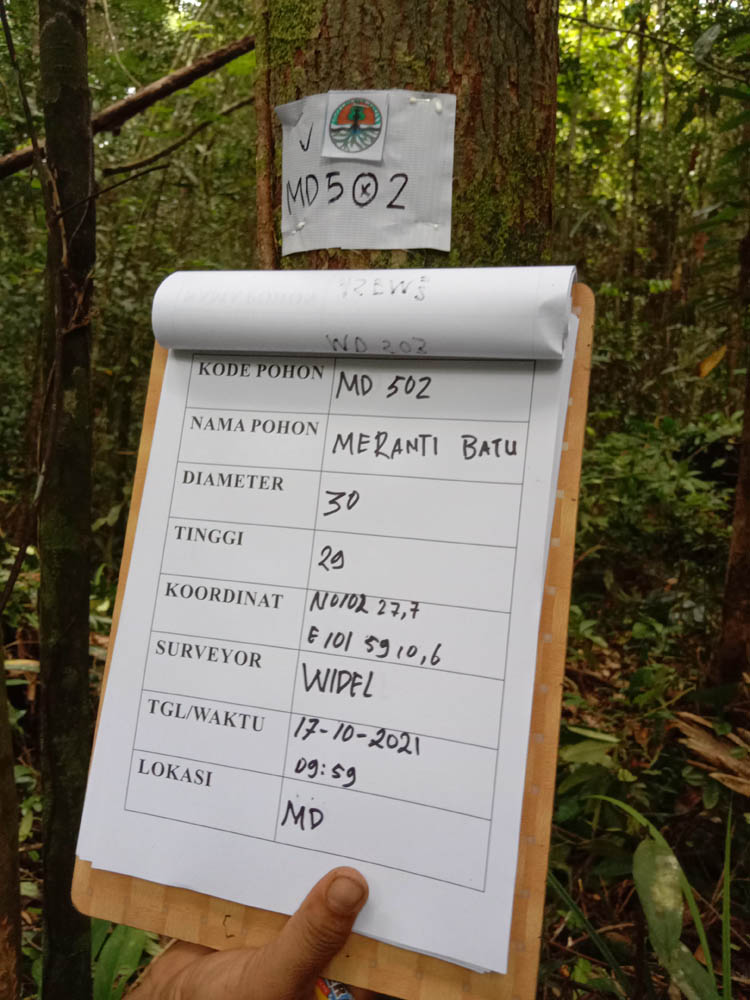 ✓
MD502
KODE POHON MD 502
NAMA POHON MERANTI BATU
DIAMETER 30
TINGGI 29
KOORDINAT N0102 27,7
E 101 59 10,6
SURVEYOR WIDEL
TGL/WAKTU 17-10-2021
09:59
LOKASI MD